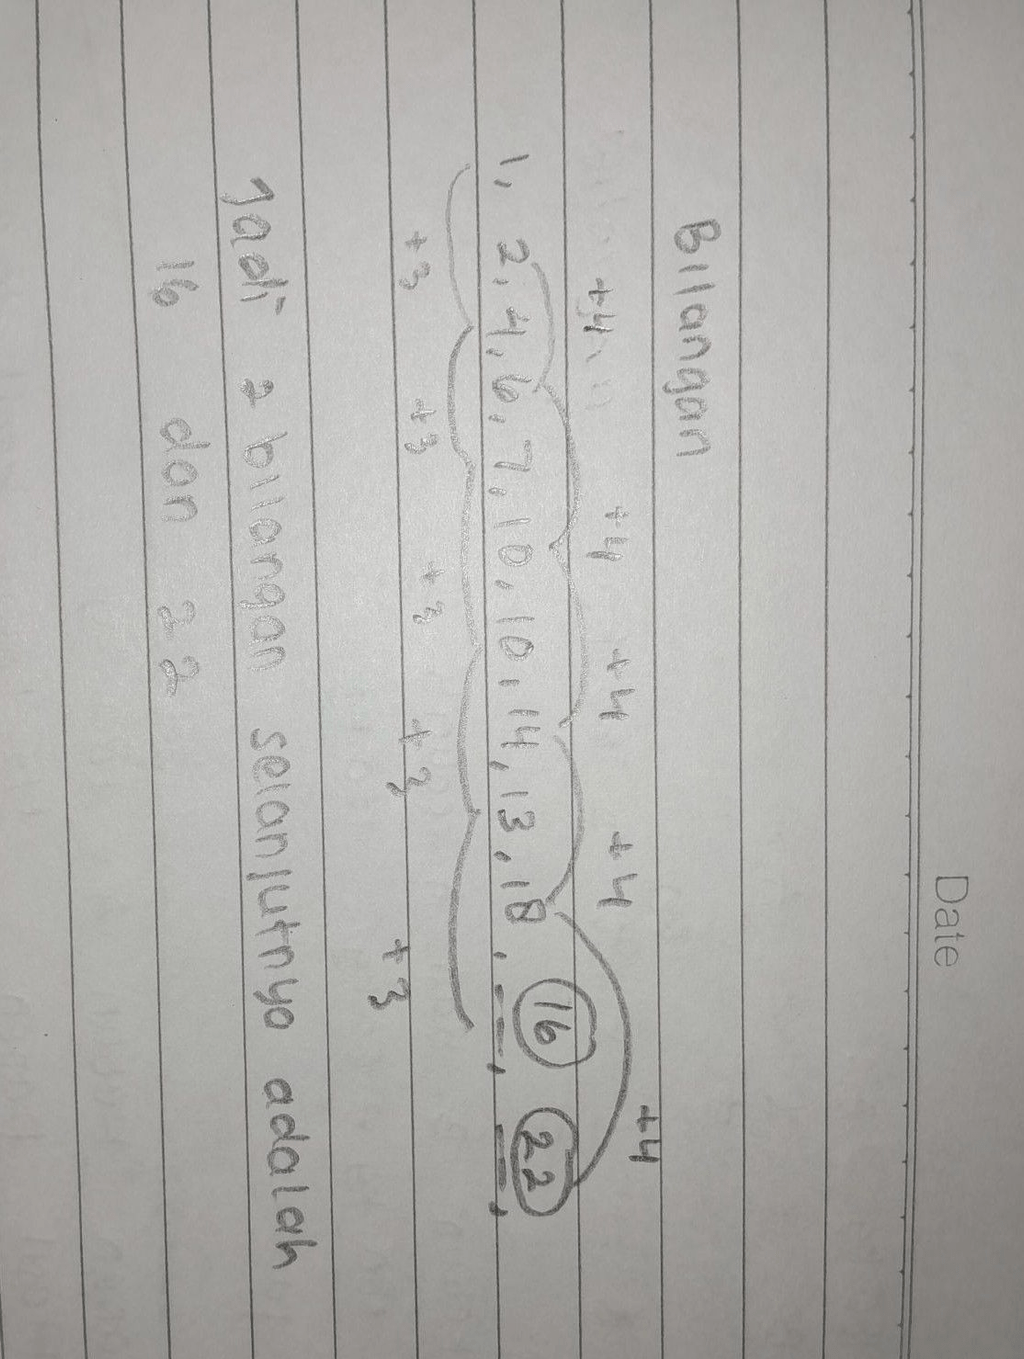 Date
Bilangan
+4 +4 +4 +4 +4
1, 2, 4, 6, 7, 10, 10, 14, 13, 18, 16, 22,
+3 +3 +3 +3 +3
Jadi 2 bilangan selanjutnya adalah
16 dan 22